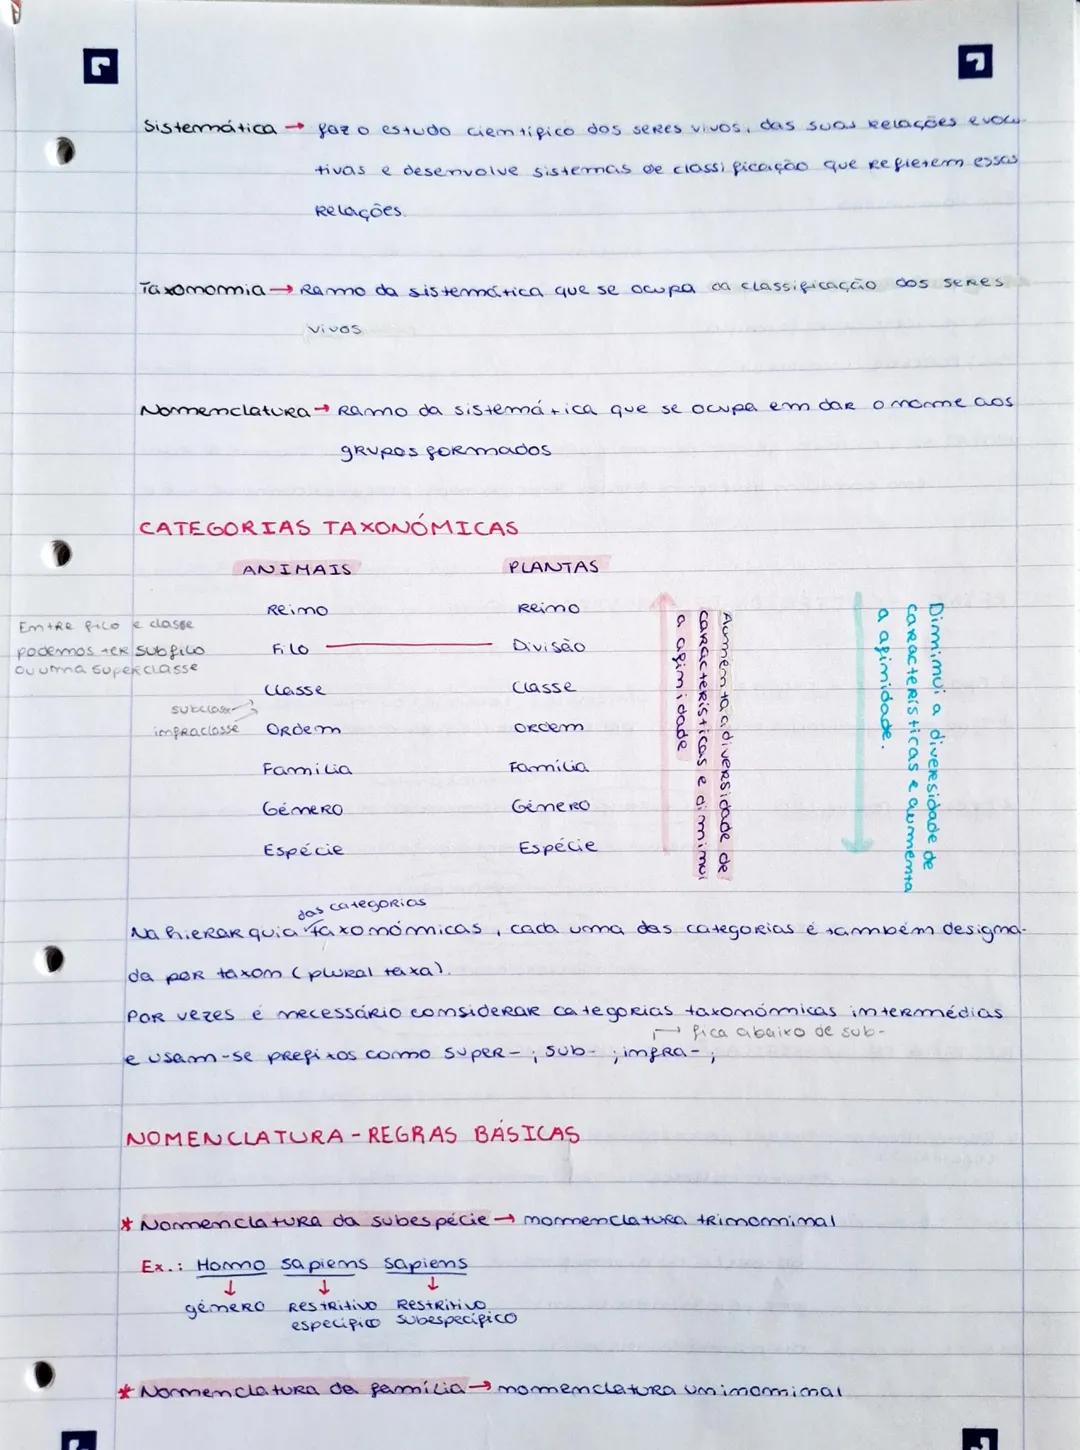 Sistemática → faz o estudo científico dos seres vivos, das suas relações evolu-
tivas e desenvolve sistemas de classificação que refletem essas
relações.
Taxonomia → Ramo da sistemática que se ocupa da classificação dos seres
vivos
Nomenclatura → Ramo da sistemática que se ocupa em dar o nome aos
grupos formados
CATEGORIAS TAXONÓMICAS
ANIMAIS PLANTAS
Reino Reino
Filo Divisão
Classe Classe
Ordem Ordem
Família Família
Género Género
Espécie Espécie
Entre filo e classe
podemos ter subfilo
ou uma superclasse
subclasse
infraclasse
Aumenta a diversidade de
características e diminui
a afinidade
Diminui a diversidade de
características e aumenta
a afinidade.
das categorias
Na hierarquia taxonómicas, cada uma das categorias é também designa-
da por taxon (plural taxa).
Por vezes é necessário considerar categorias taxonómicas intermédias
→ fica abaixo de sub-
e usam-se prefixos como super-; sub-; infra-;
NOMENCLATURA - REGRAS BÁSICAS
* Nomenclatura da subespécie → nomenclatura trinominal
Ex.: Homo sapiens sapiens
↓ ↓ ↓
género Restritivo Restritivo
específico subespecífico
* Nomenclatura da família → nomenclatura uninominal